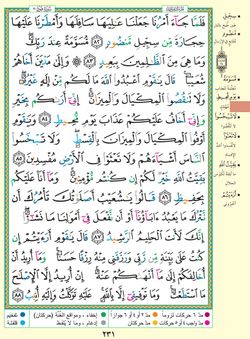 فَلَمَّا جَآءَ أَمْرُنَا جَعَلْنَا عَٰلِيَهَا سَافِلَهَا وَأَمْطَرْنَا عَلَيْهَا
حِجَارَةً مِّن سِجِّيلٍ مَّنضُودٍ ٨٢ مُّسَوَّمَةً عِندَ رَبِّكَ
وَمَا هِىَ مِنَ ٱلظَّٰلِمِينَ بِبَعِيدٍ ٨٣ ۞ وَإِلَىٰ مَدْيَنَ أَخَاهُمْ
شُعَيْبًا ۚ قَالَ يَٰقَوْمِ ٱعْبُدُوا۟ ٱللَّهَ مَا لَكُم مِّنْ إِلَٰهٍ غَيْرُهُۥ ۖ
وَلَا تَنقُصُوا۟ ٱلْمِكْيَالَ وَٱلْمِيزَانَ ۚ إِنِّىٓ أَرَىٰكُم بِخَيْرٍ
وَإِنِّىٓ أَخَافُ عَلَيْكُمْ عَذَابَ يَوْمٍ مُّحِيطٍ ٨٤ وَيَٰقَوْمِ
أَوْفُوا۟ ٱلْمِكْيَالَ وَٱلْمِيزَانَ بِٱلْقِسْطِ ۖ وَلَا تَبْخَسُوا۟
ٱلنَّاسَ أَشْيَآءَهُمْ وَلَا تَعْثَوْا۟ فِى ٱلْأَرْضِ مُفْسِدِينَ ٨٥
بَقِيَّتُ ٱللَّهِ خَيْرٌ لَّكُمْ إِن كُنتُم مُّؤْمِنِينَ ۚ وَمَآ أَنَا۠ عَلَيْكُم
بِحَفِيظٍ ٨٦ قَالُوا۟ يَٰشُعَيْبُ أَصَلَوٰتُكَ تَأْمُرُكَ أَن
نَّتْرُكَ مَا يَعْبُدُ ءَابَآؤُنَآ أَوْ أَن نَّفْعَلَ فِىٓ أَمْوَٰلِنَا مَا نَشَٰٓؤُا۟ ۖ
إِنَّكَ لَأَنتَ ٱلْحَلِيمُ ٱلرَّشِيدُ ٨٧ قَالَ يَٰقَوْمِ أَرَءَيْتُمْ إِن
كُنتُ عَلَىٰ بَيِّنَةٍ مِّن رَّبِّى وَرَزَقَنِى مِنْهُ رِزْقًا حَسَنًا ۚ وَمَآ أُرِيدُ أَنْ
أُخَالِفَكُمْ إِلَىٰ مَآ أَنْهَىٰكُمْ عَنْهُ ۚ إِنْ أُرِيدُ إِلَّا ٱلْإِصْلَٰحَ
مَا ٱسْتَطَعْتُ ۚ وَمَا تَوْفِيقِىٓ إِلَّا بِٱللَّهِ ۚ عَلَيْهِ تَوَكَّلْتُ وَإِلَيْهِ أُنِيبُ ٨٨
٢٣١